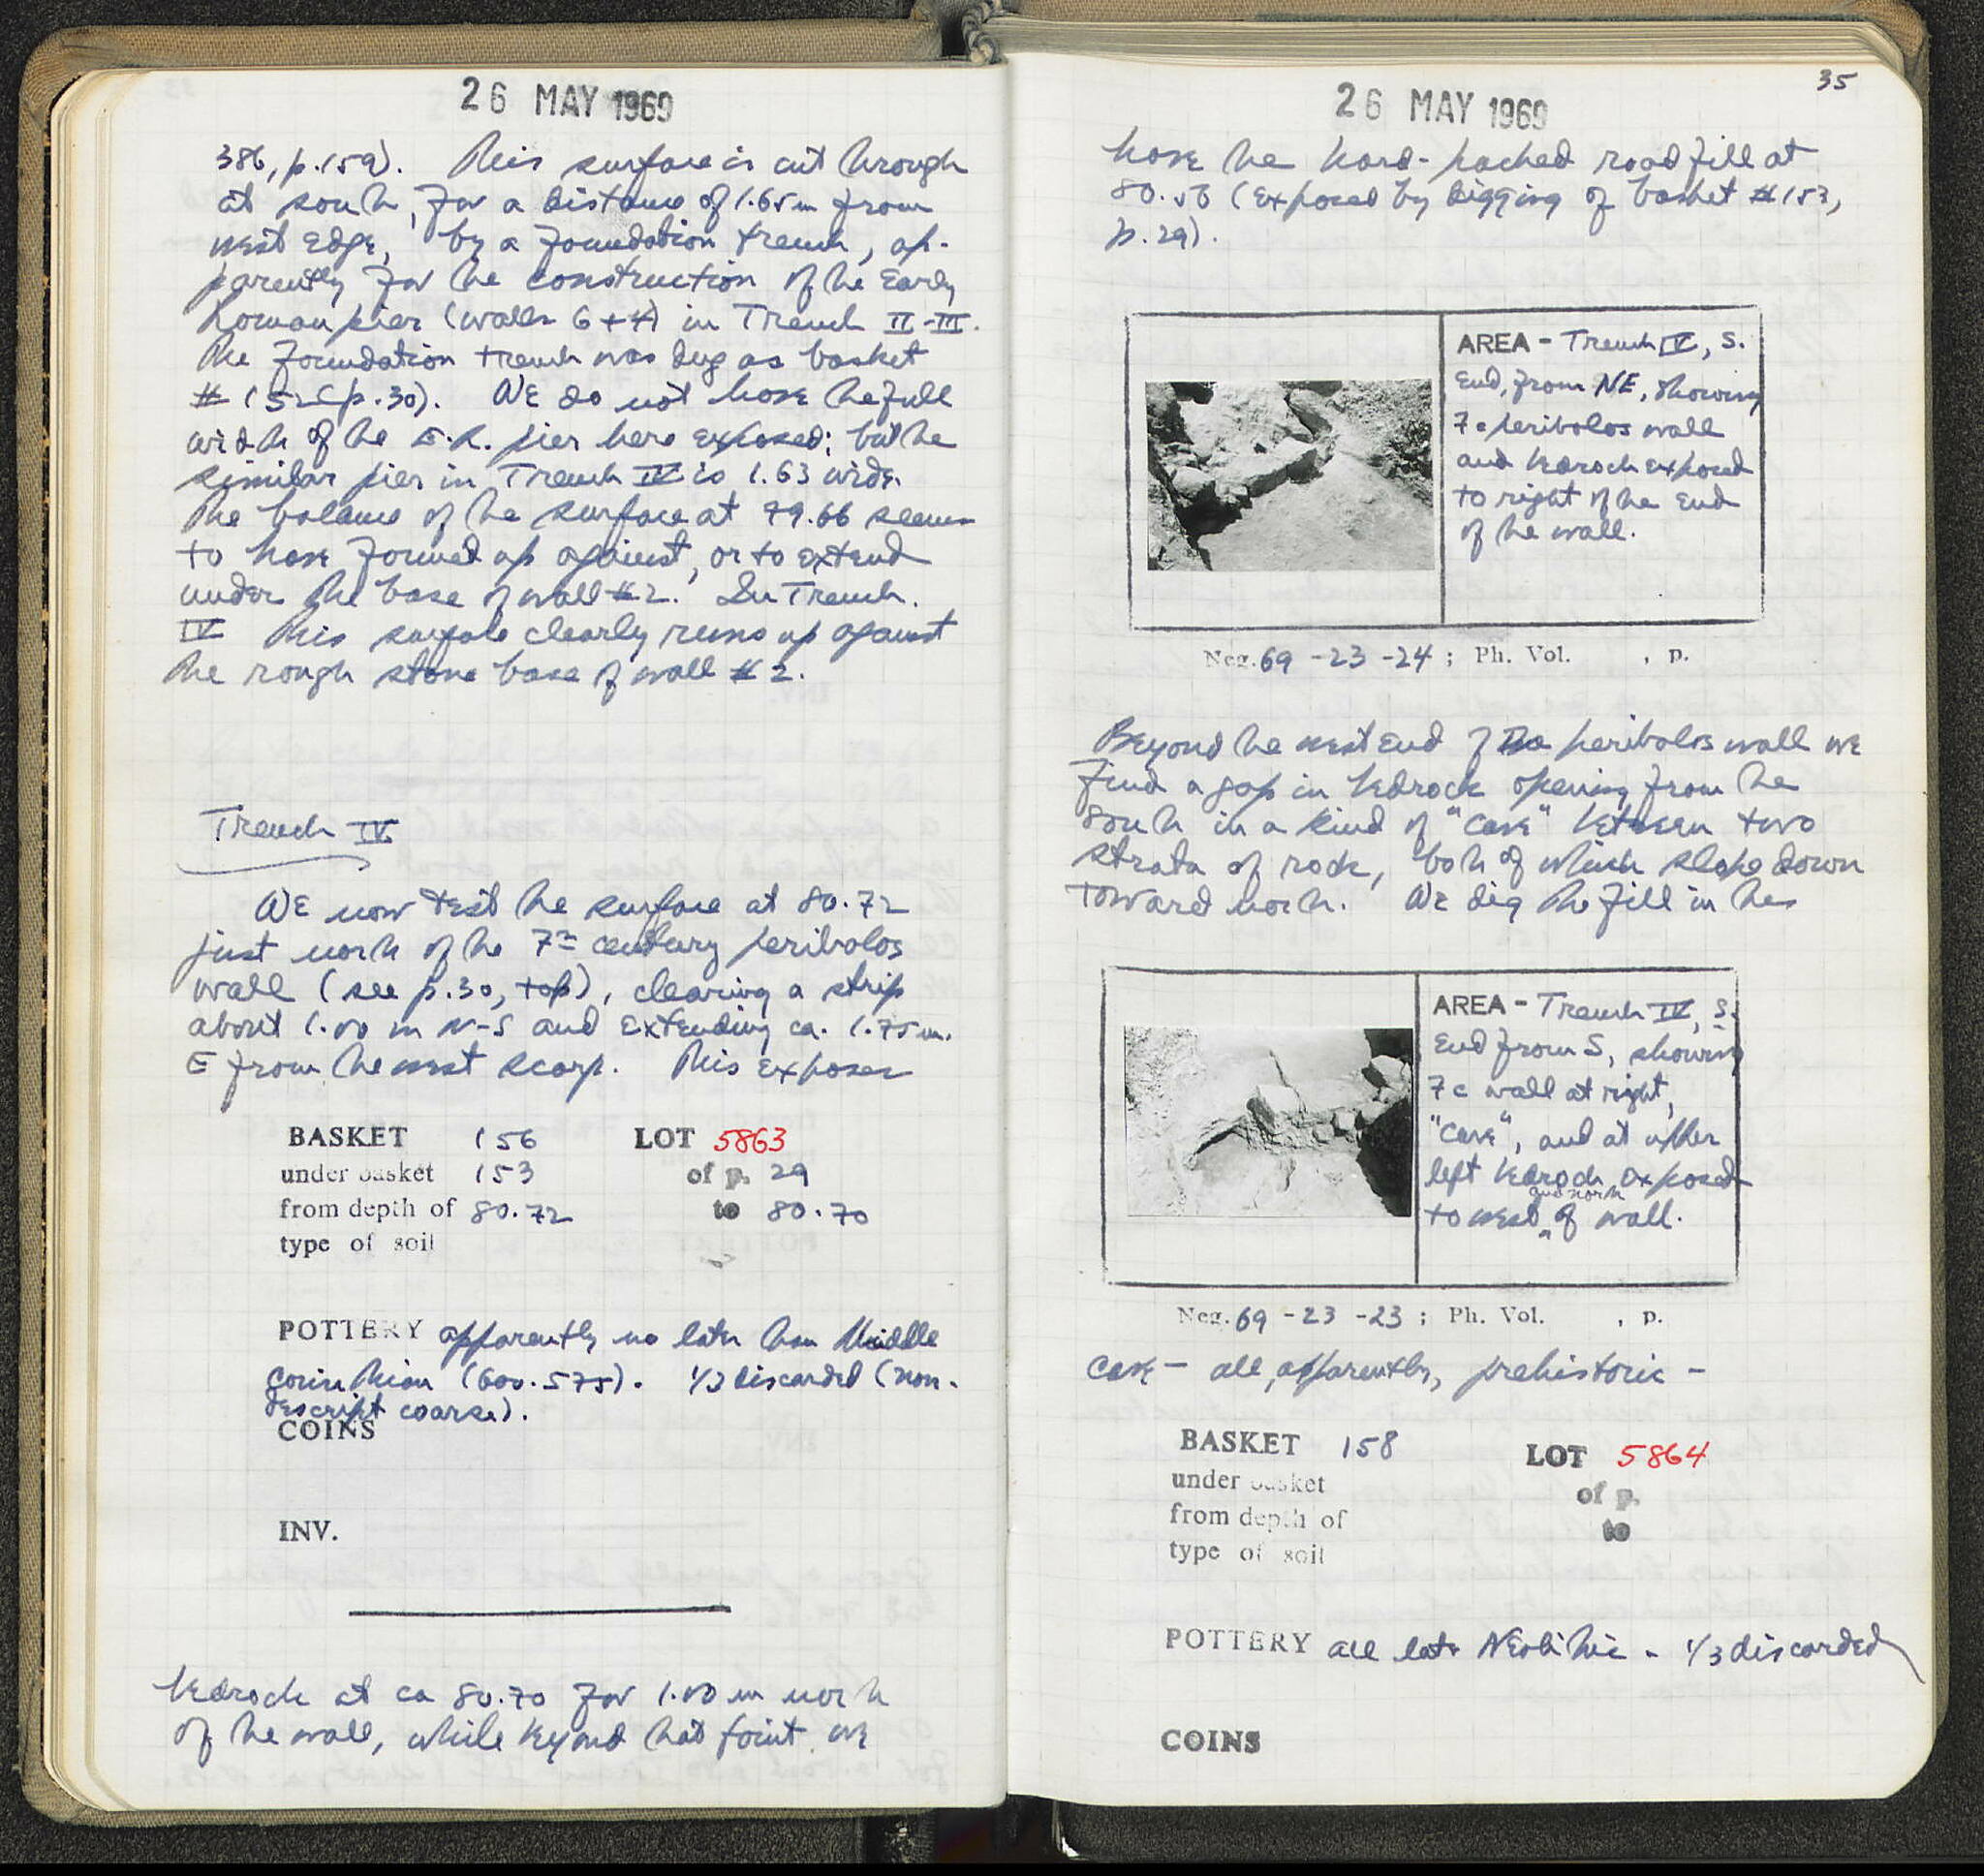 26 MAY 1969
386, p. 159). This surface is cut through
at south, for a distance of 1.65 m from
west edge, by a foundation trench, ap-
parently for the construction of the Early
Roman pier (walls 6 + 4) in Trench II-III.
The foundation trench was dug as basket
# 152 (p. 30). We do not have the full
width of the E.R. pier here exposed; but the
similar pier in Trench IV is 1.63 wide.
The balance of the surface at 79.66 seems
to have formed up against, or to extend
under the base of wall # 2. In Trench
IV this surface clearly runs up against
the rough stone base of wall # 2.
Trench IV
We now test the surface at 80.72
just north of the 7th century peribolos
wall (see p. 30, top), clearing a strip
about 1.00 m N-S and extending ca. 1.75 m.
E from the west scarp. This exposes
BASKET 156 LOT 5863
under basket 153 of p. 29
from depth of 80.72 to 80.70
type of soil
POTTERY apparently no later than Middle
Corinthian (600-575). 1/3 discarded (non-
descript coarse).
COINS
INV.
bedrock at ca 80.70 for 1.00 m north
of the wall, while beyond that point we
35
26 MAY 1969
have the hard-packed road fill at
80.56 (exposed by digging of basket # 153,
p. 29).
AREA - Trench IV, S.
End, from NE, showing
7c peribolos wall
and bedrock exposed
to right of the end
of the wall.
Neg. 69 -23 -24 ; Ph. Vol. , p.
Beyond the west end of the peribolos wall we
find a gap in bedrock opening from the
south in a kind of "cave" between two
strata of rock, both of which slope down
toward north. We dig the fill in this
AREA - Trench IV, S.
End from S, showing
7c wall at right,
"cave", and at upper
left bedrock exposed
and north
to west ^ of wall.
Neg. 69 -23 -23 ; Ph. Vol. , p.
cave - all, apparently, prehistoric -
BASKET 158 LOT 5864
under basket of p.
from depth of to
type of soil
POTTERY all late Neolithic - 1/3 discarded
COINS